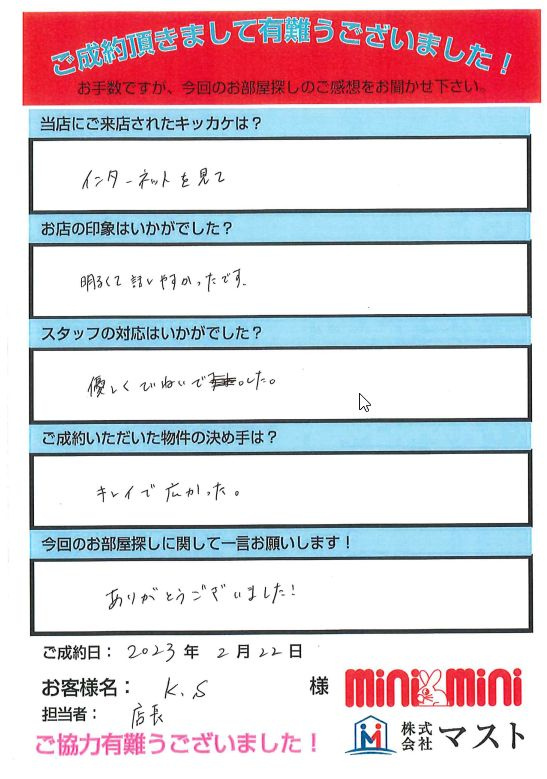 ご成約頂きまして有難うございました!
お手数ですが、今回のお部屋探しのご感想をお聞かせ下さい。
当店にご来店されたキッカケは?
インターネットを見て
お店の印象はいかがでした?
明るくて話しやすかったです.
スタッフの対応はいかがでした?
優しくていねいでした。
ご成約いただいた物件の決め手は?
キレイで広かった。
今回のお部屋探しに関して一言お願いします!
ありがとうございました!
ご成約日: 2023 年 2 月 22 日
お客様名: K.S 様
minimini
担当者: 店長
株式会社 マスト
ご協力有難うございました!